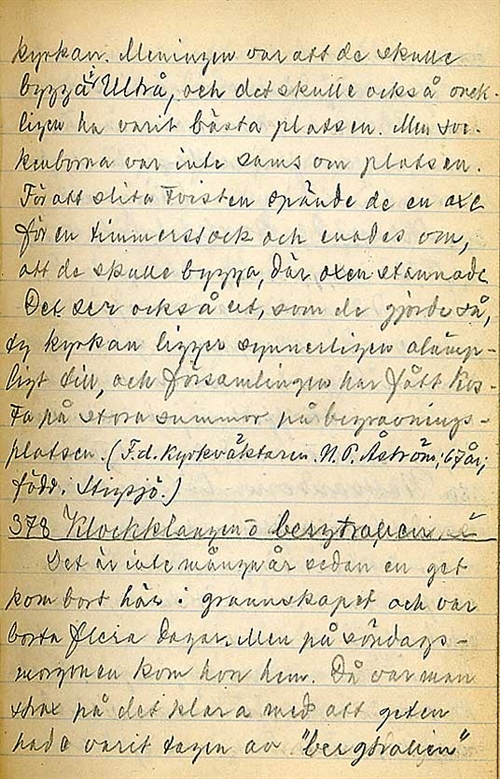 kyrkan. Meningen var att de skulle
bygga i Ullså, och det skulle också onek-
ligen ha varit bästa platsen. Men soc-
kenborna var inte sams om platsen.
För att slita tvisten spände de en oxe
för en timmerstock och enades om,
att de skulle bygga, där oxen stannade.
Det ser också ut, som de gjorde så,
ty kyrkan ligger synnerligen olämp-
ligt till, och församlingen har fått kos-
ta på stora summor på begravnings-
platsen. (F.d. kyrkväktaren N. P. Åström, 67 år,
född i Stigsjö.)
378 Klockklangen o bergtrollen
Det är inte många år sedan en get
kom bort här i grannskapet och var
borta flera dagar. Men på söndags-
morgonen kom hon hem. Då var man
strax på det klara med att geten
hade varit tagen av "bergtrollen"